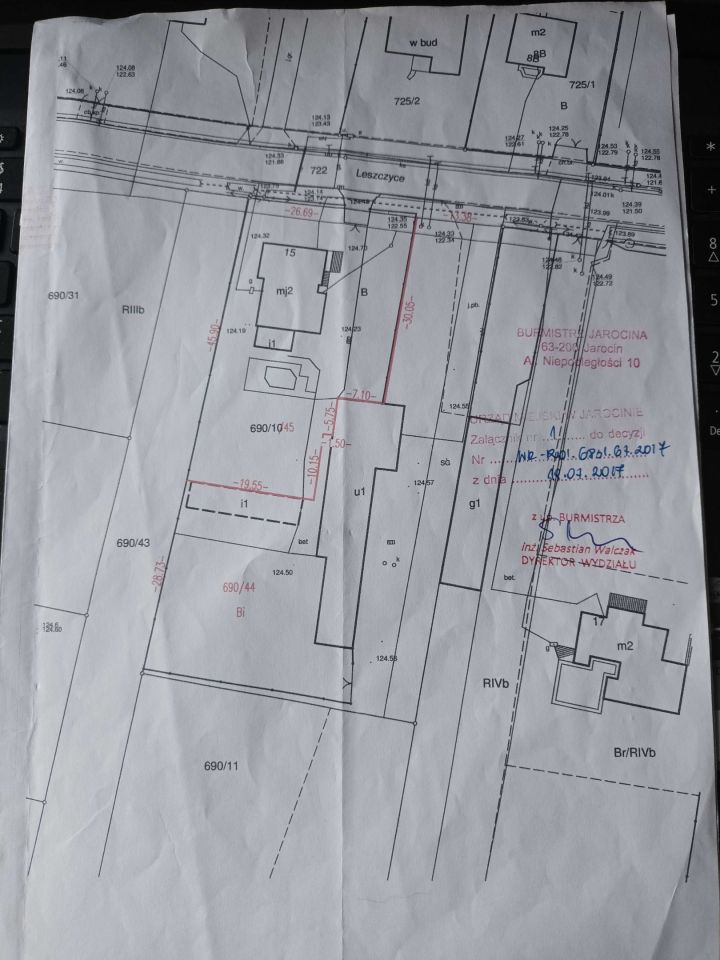 w bud
m2
8B
8B
725/1
725/2
B
124.08
122.63
124.08
124.13
123.43
124.33
121.88
722
Leszczyce
124.25
122.78
124.53
122.79
124.55
122.78
124.01k
124.39
121.50
123.99
123.89
-26.69-
124.35
122.55
124.33
122.34
124.32
15
mj2
g
i1
124.19
124.23
B
690/31
RIIIb
-45.90-
-30.05-
j.pb.
124.49
122.72
BURMISTRZ JAROCINA
63-200 Jarocin
Al. Niepodległości 10
-7.10-
-5.75-
124.55
URZĄD MIEJSKI W JAROCINIE
Załącznik nr 1 do decyzji
Nr WR-RPOI.6831.67.2017
z dnia
690/10
/45
-10.15-
-19.55-
i1
u1
124.57
SG
g1
z up. BURMISTRZA
inż. Sebastian Walczak
DYREKTOR WYDZIAŁU
690/43
bet
k
124.50
690/44
Bi
-28.73-
bet.
124.58
17
g
m2
RIVb
Br/RIVb
690/11